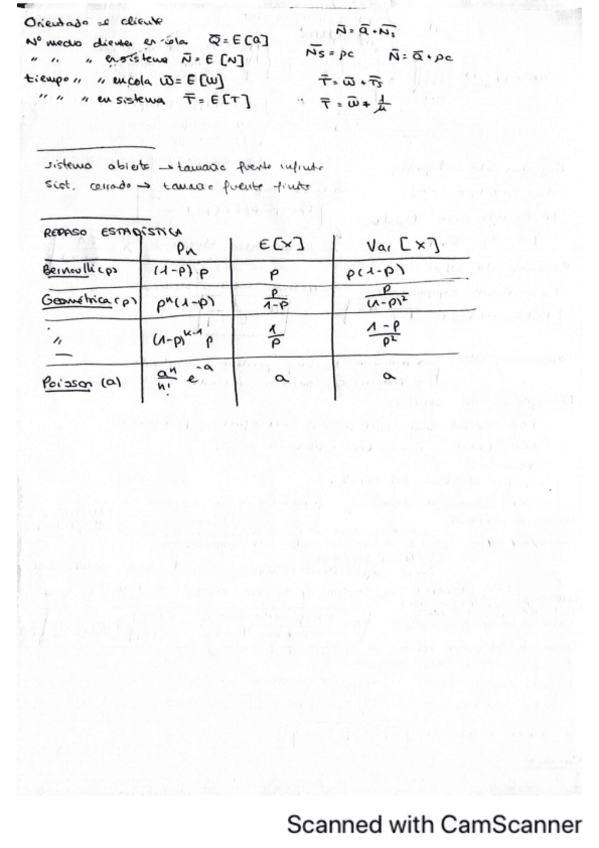 Orientado al cliente
Nº medio clientes en cola Q̄ = E[Q] N̄ = Q̄ + N̄s
" " " en sistema N̄ = E[N] N̄s = ρc N̄ = Q̄ + ρc
tiempo " " en cola w̄ = E[W] T̄ = w̄ + T̄s
" " " en sistema T̄ = E[T] T̄ = w̄ + 1/μ
sistema abierto → tamaño fuente infinito
Sist. cerrado → tamaño fuente finito
REPASO ESTADÍSTICA
Pn E[X] Var[X]
Bernoulli (p) (1-p), p p p(1-p)
Geométrica (p) pⁿ(1-p) p/(1-p) p/(1-p)²
" (1-p)ᵏ⁻¹ p 1/p (1-p)/p²
Poisson (a) aⁿ/n! e⁻ᵃ a a
Scanned with CamScanner